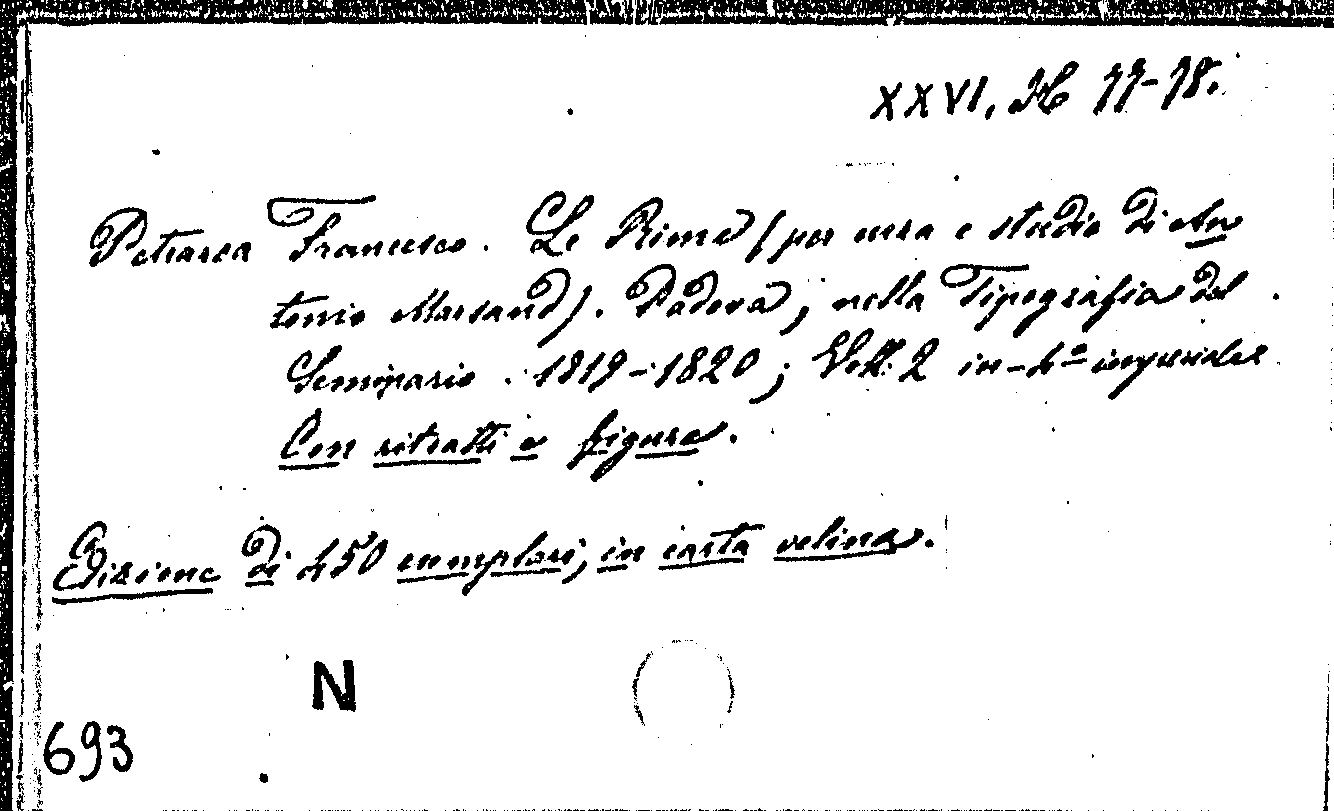 XXVI. H 77-78.
Petrarca Francesco. Le Rime (per cura e studio di An
tonio Marsand). Padova, nella Tipografia del
Seminario. 1819-1820; Voll. 2 in-4º imperiale
Con ritratti e figure.
Edizione di 450 esemplari, in carta velina.
N
693